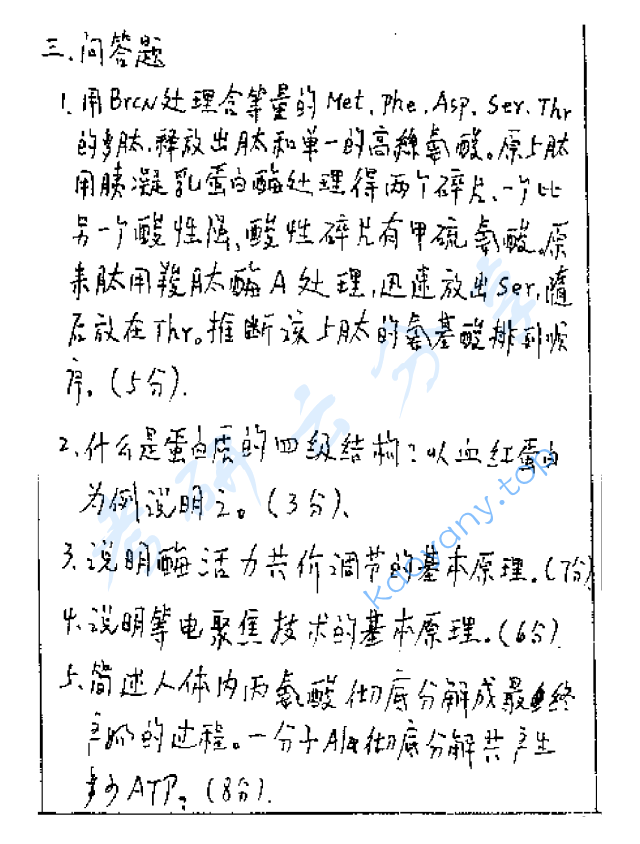 三、问答题
1. 用BrCN处理含等量的Met、Phe、Asp、Ser、Thr
的多肽,释放出肽和单一的高丝氨酸。原5肽
用胰凝乳蛋白酶处理得两个碎片、一个比
另一个酸性强、酸性碎片有甲硫氨酸。原
来肽用羧肽酶A处理,迅速放出Ser,随
后放在Thr。推断该5肽的氨基酸排列顺
序。(5分).
2、什么是蛋白质的四级结构?以血红蛋白
为例说明之。(3分)、
3、说明酶活力共价调节的基本原理。(7分)
4、说明等电聚焦技术的基本原理。(6分)
5、简述人体内丙氨酸彻底分解成最终
产物的过程。一分子Ala彻底分解共产生
多少ATP?(8分).
考研云分享
kaoyany.top